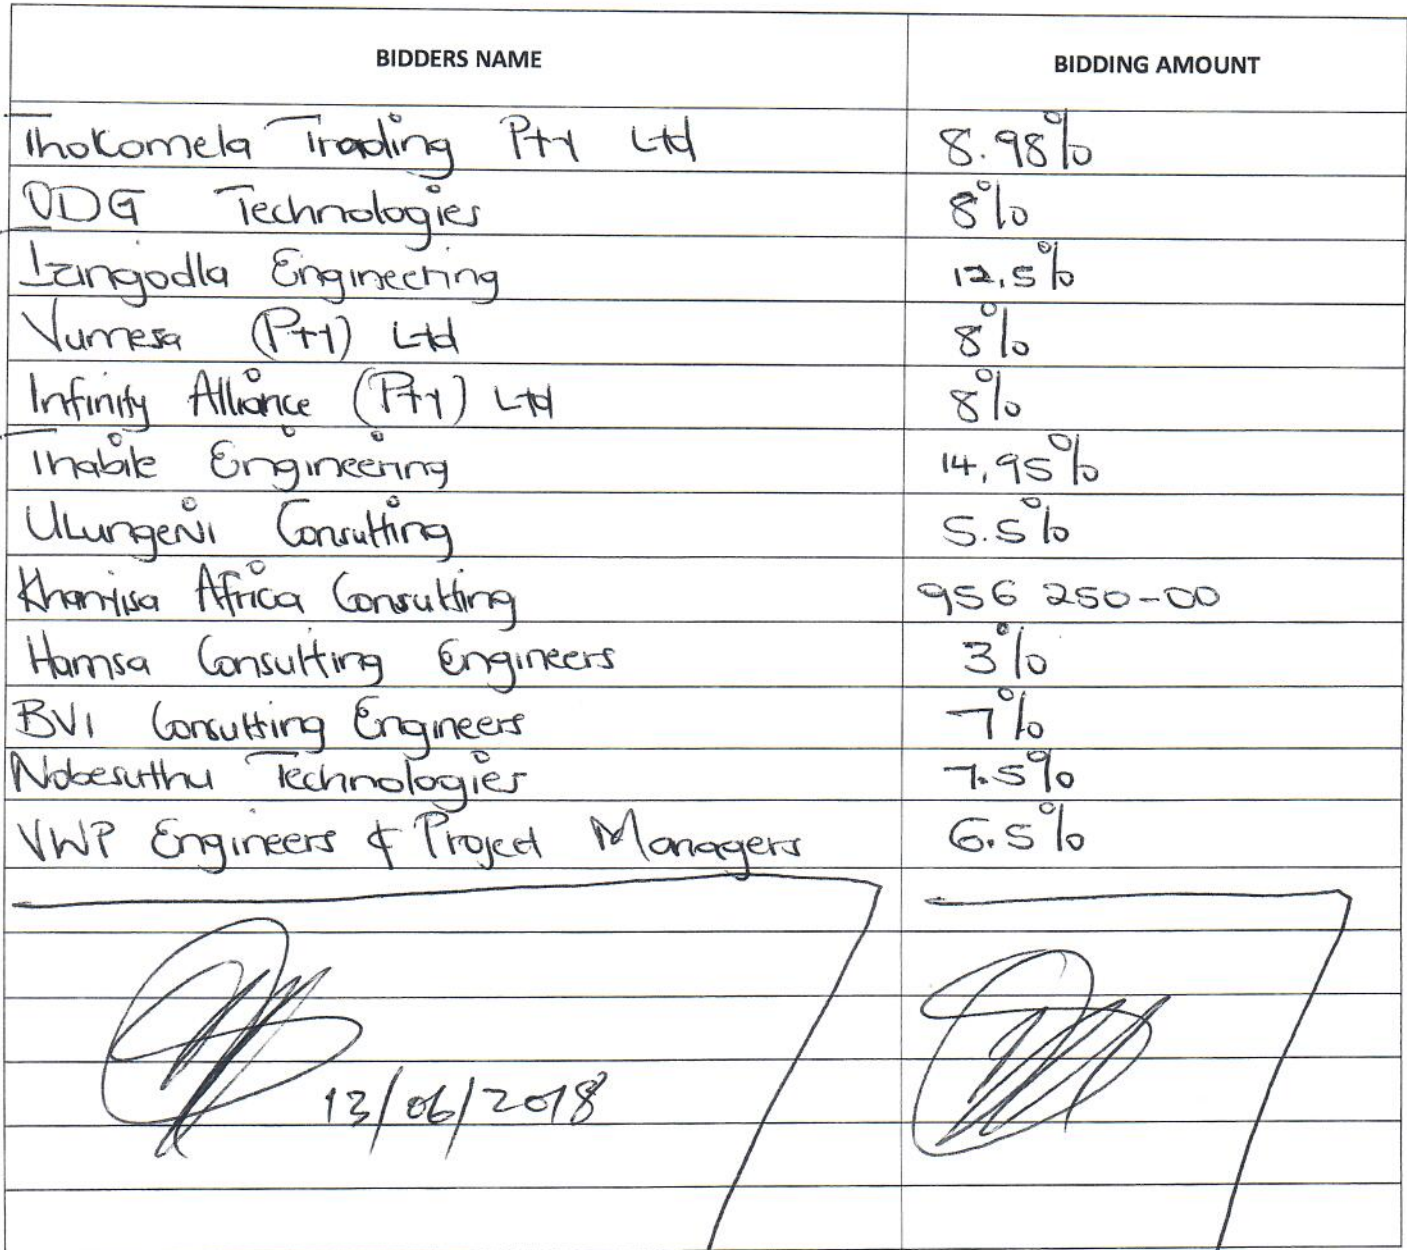 BIDDERS NAME BIDDING AMOUNT
Thokomela Trading Pty Ltd 8.98%
VDG Technologies 8%
Izingodla Engineering 12,5%
Vumesa (Pty) Ltd 8%
Infinity Alliance (Pty) Ltd 8%
Thabile Engineering 14,95%
Ulungeni Consulting 5.5%
Khanyisa Africa Consulting 956 250-00
Hamsa Consulting Engineers 3%
BVI Consulting Engineers 7%
Nobesuthu Technologies 7.5%
VWP Engineers & Project Managers 6.5%
13/06/2018